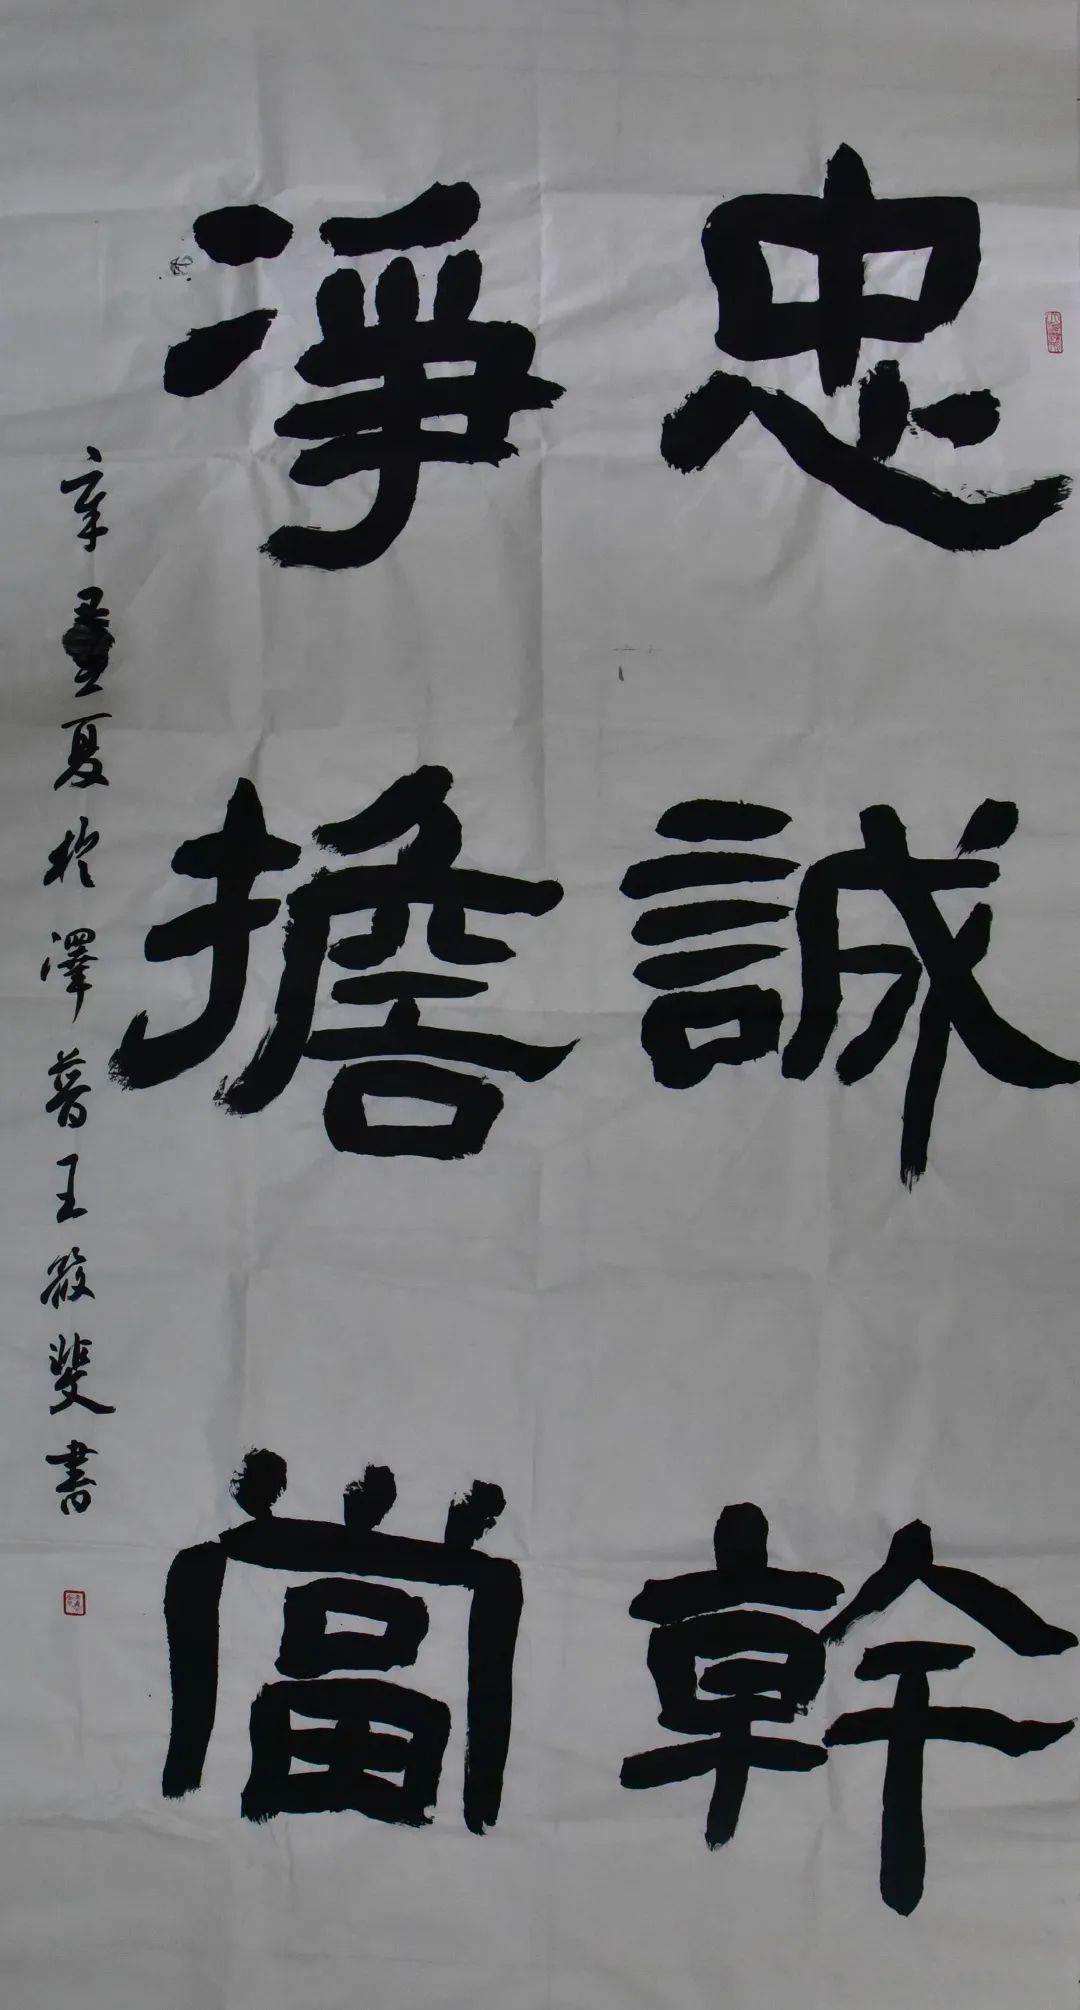 忠誠幹
淨擔當
辛丑夏於澤普王筱斐書